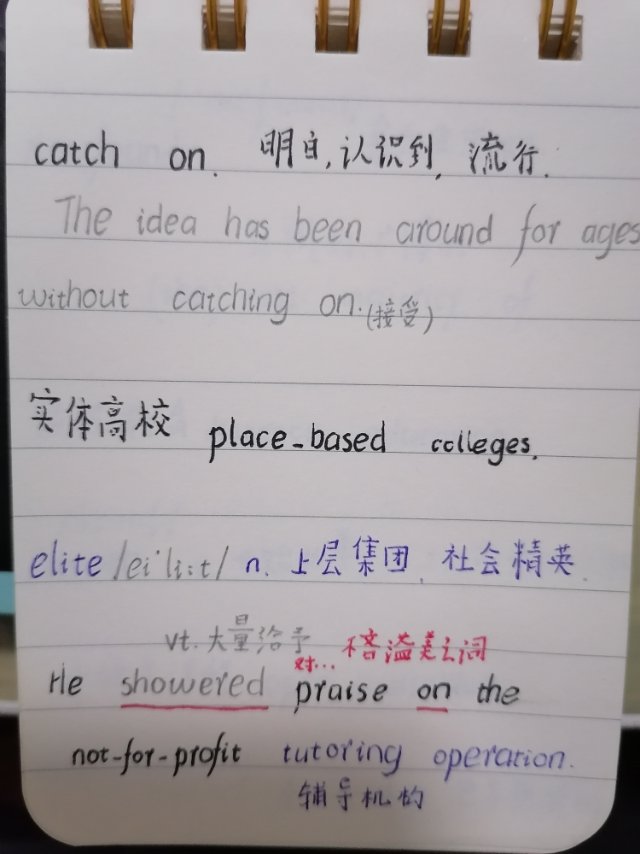 catch on. 明白,认识到,流行.
The idea has been around for ages
without catching on.(接受)
实体高校 place-based colleges.
elite /ei'li:t/ n. 上层集团,社会精英.
vt.大量给予 对...不吝溢美之词
He showered praise on the
not-for-profit tutoring operation.
辅导机构